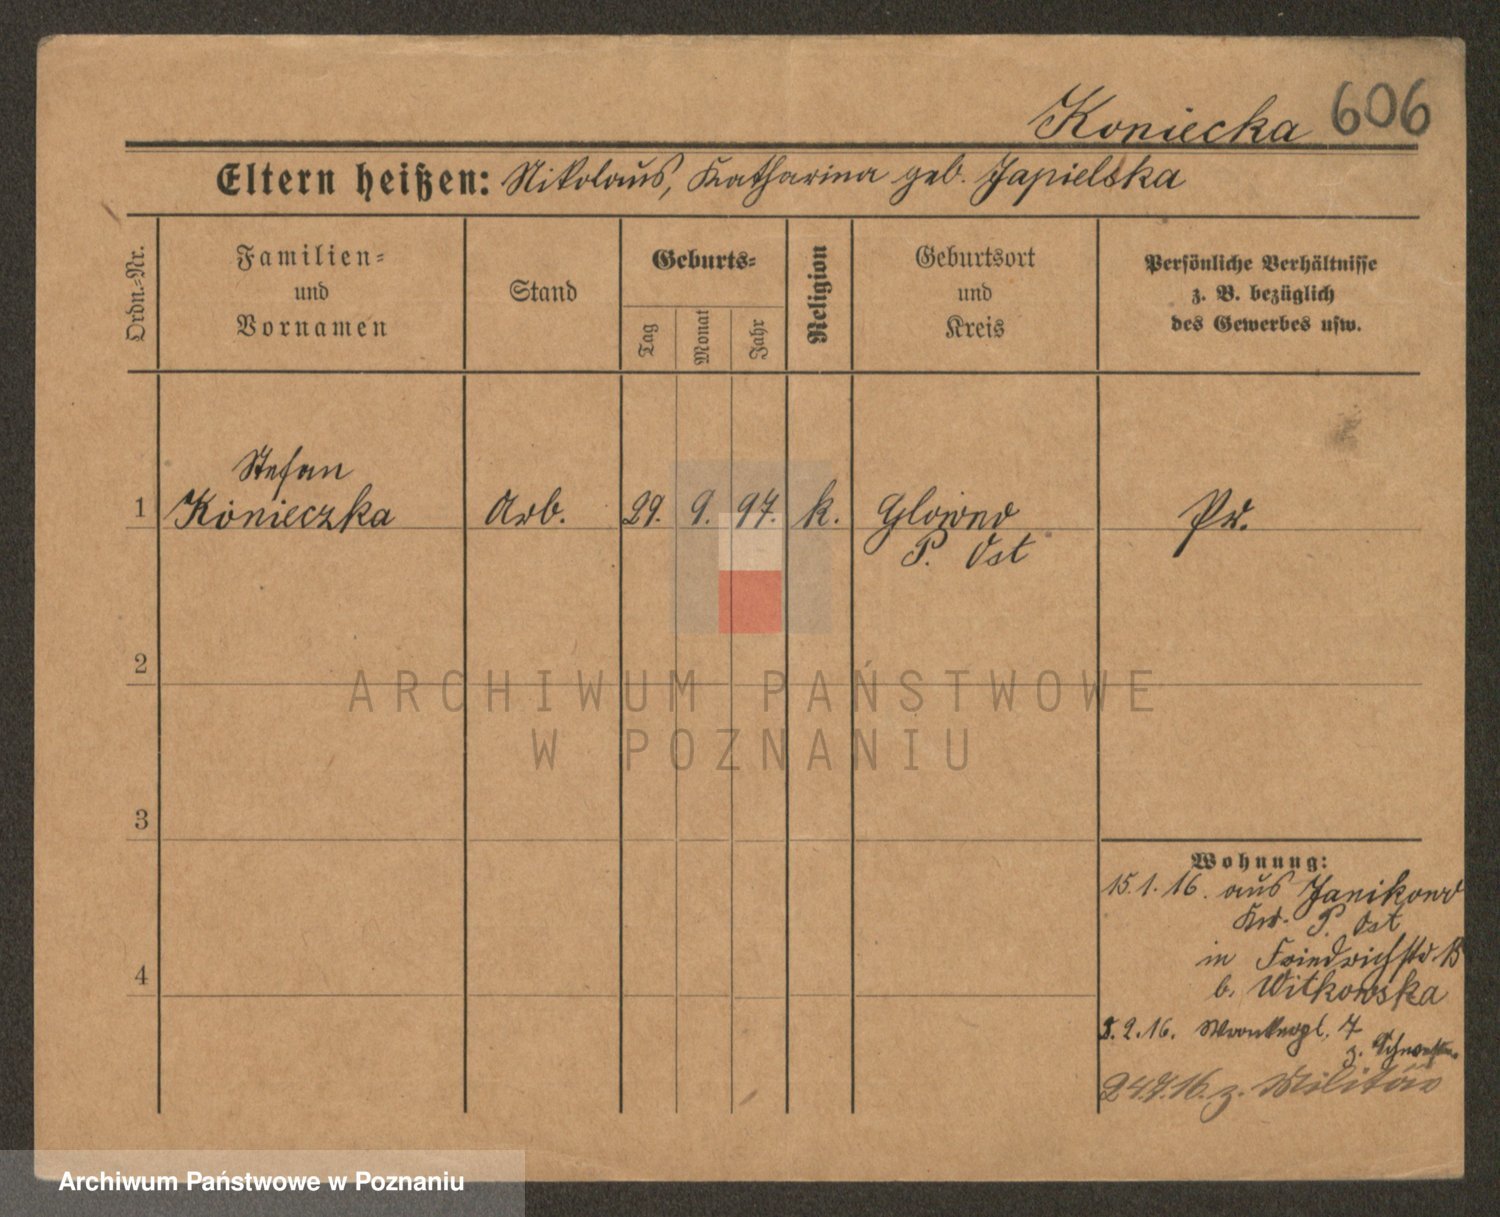 Koniecka 606
Eltern heißen: Nikolaus, Katharina geb. Japielska
Ordn.-Nr.
Familien-
und
Vornamen
Stand
Geburts-
Tag
Monat
Jahr
Religion
Geburtsort
und
Kreis
Persönliche Verhältnisse
z. B. bezüglich
des Gewerbes usw.
Stefan
1 Konieczka Arb. 29. 9. 97. k. Glowno Pr.
P. Ost
2
3
4
Wohnung:
15.1.16. aus Janikowo
Kr. P. Ost
in Friedrichstr
b. Witkowska
8.2.16. Wronkerpl. 7
z. Schwester
24.7.16. z. Militär
ARCHIWUM PAŃSTWOWE
W POZNANIU
Archiwum Państwowe w Poznaniu